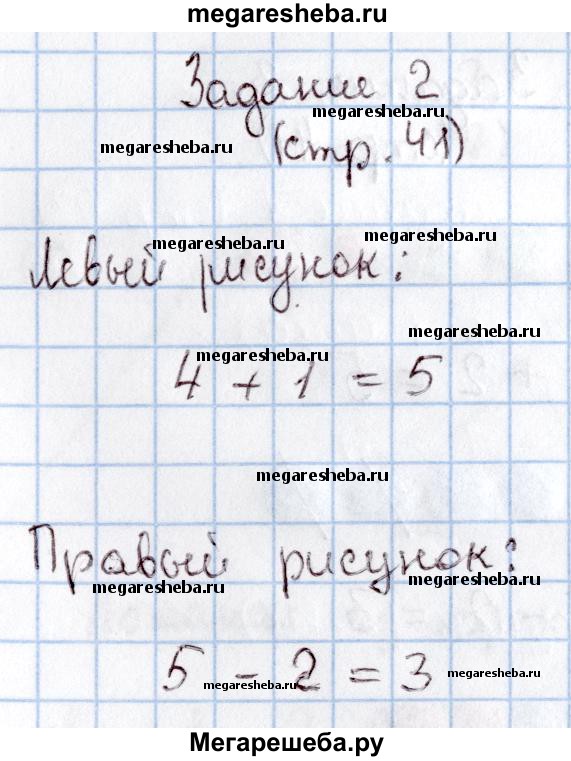 megaresheba.ru
Задание 2
megaresheba.ru
megaresheba.ru
(стр. 41)
megaresheba.ru
megaresheba.ru
Левый рисунок:
megaresheba.ru
megaresheba.ru
4 + 1 = 5
megaresheba.ru
Правый рисунок:
megaresheba.ru
megaresheba.ru
5 - 2 = 3
megaresheba.ru
megaresheba.ru
Мегарешеба.ру